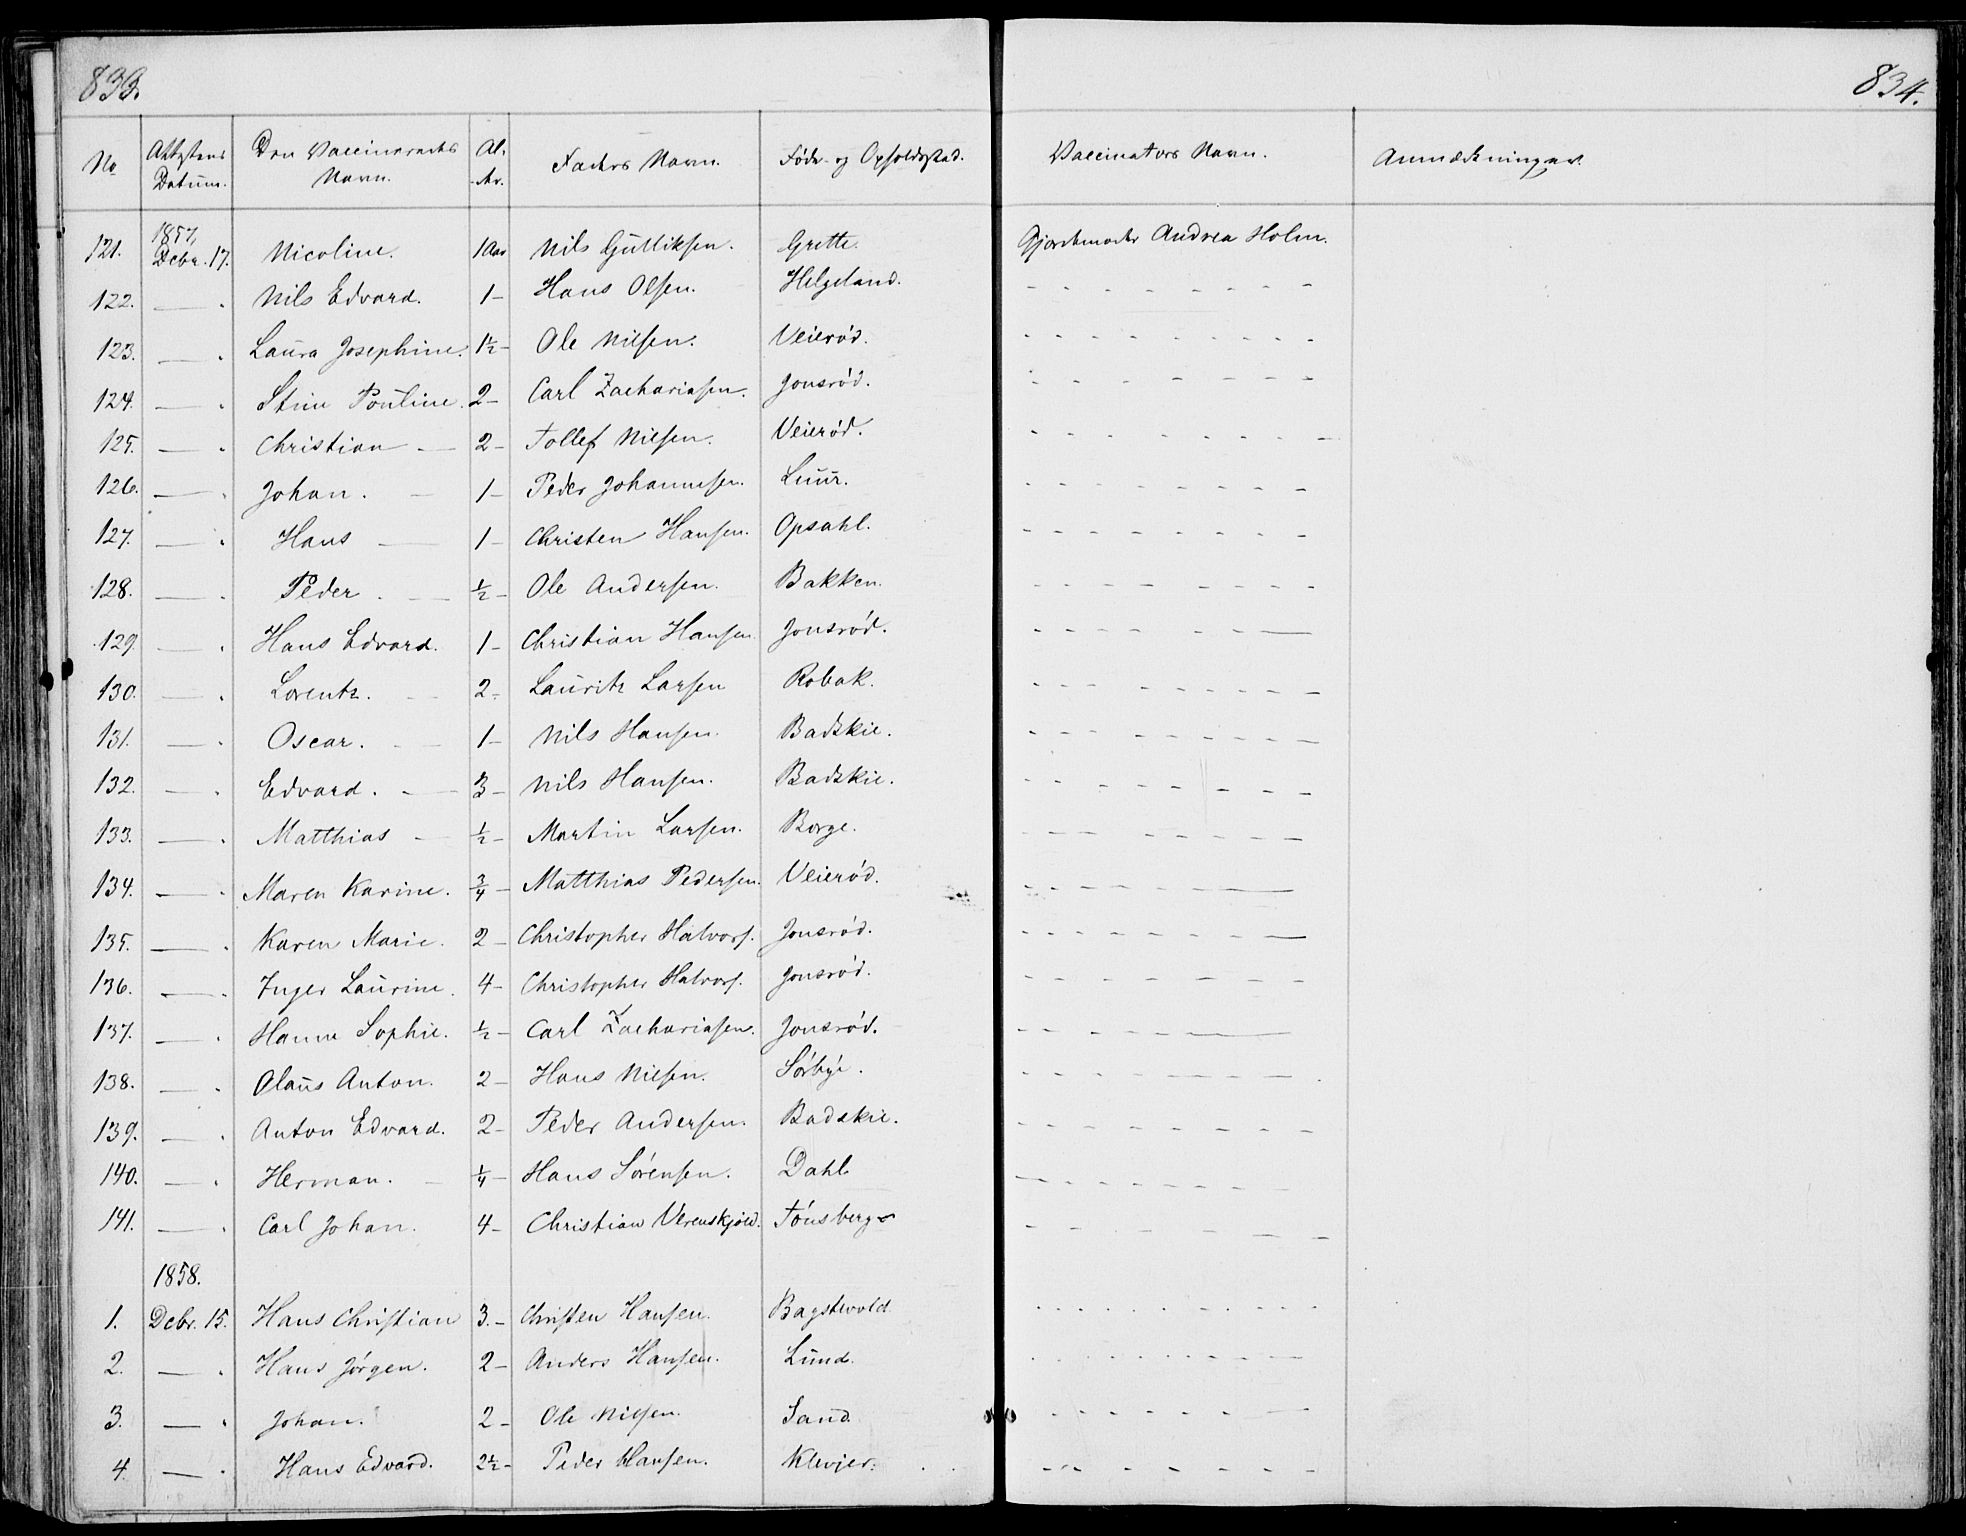 833. 834.
No Attestens Datum. Den Vaccineredes Navn. Al- der. Faders Navn. Føde- og Opholdssted. Vaccinators Navn. Anmærkninger.
1857,
121. Debr. 17. Nicoline. 1 Aar Nils Gulliksen. Grette. Gjordemoder Andrea Holm.
122. — " Nils Edvard. 1 - Hans Olsen. Helgeland. - - - - - - - -
123. — " Laura Josephine. 1½ - Ole Nilsen. Veierød. - - - - - - - -
124. — " Stine Pouline. 2 - Carl Zachariasen. Jonsrød. - - - - - - - -
125. — " Christian — 2 - Tollef Nilsen. Veierød. - - - - - - - -
126. — " Johan. - 1 - Peder Johannesen. Luur. - - - - - - - -
127. — " Hans — 1 - Christen Hansen. Opsahl. - - - - - - - -
128. — " Peder. — ½ - Ole Andersen. Bakken. - - - - - - - -
129. — " Hans Edvard. 1 - Christian Hansen Jonsrød. - - - - - - —
130. — " Lorentz. - 2 - Lauritz Larsen Robak. - - - - - - - -
131. — " Oscar. - 1 - Nils Hansen. Badskie. - - - - - - - -
132. — " Edvard. — 3 - Nils Hansen. Badskie. - - - - - - - -
133. — " Matthias — ½ - Martin Larsen. Borge. - - - - - - - -
134. — " Maren Karine. ¾ - Matthias Pedersen. Veierød. - - - - - - —
135. — " Karen Marie. 2 - Christopher Halvors. Jonsrød. - - - - - - - -
136. — " Inger Laurine. 4 - Christopher Halvors. Jonsrød. - - - - - - -
137. — " Hanne Sophie. ½ - Carl Zachariasen. Jonsrød. - - - - - —
138. — " Olaus Anton. 2 - Hans Nilsen. Sørbye. - - - - - - - -
139. — " Anton Edvard. 2 - Peder Andersen. Badskie. - - - - - - - -
140. — " Herman. - ¼ - Hans Sørensen. Dahl. - - - - - - - -
141. — " Carl Johan. 4 - Christian Verenskjold. Tønsberg - - - - - -
1858.
1. Debr. 15. Hans Christian 3. - Christen Hansen. Bagstevold. - - - - - - - -
2. — " Hans Jørgen. 2 - Anders Hansen. Lund. - - - - - - - -
3. — " Johan. 2 - Ole Nilsen. Sand. - - - - - - -
4. — " Hans Edvard. 2½ - Peder Hansen. Klevjer. - - - - - - - -